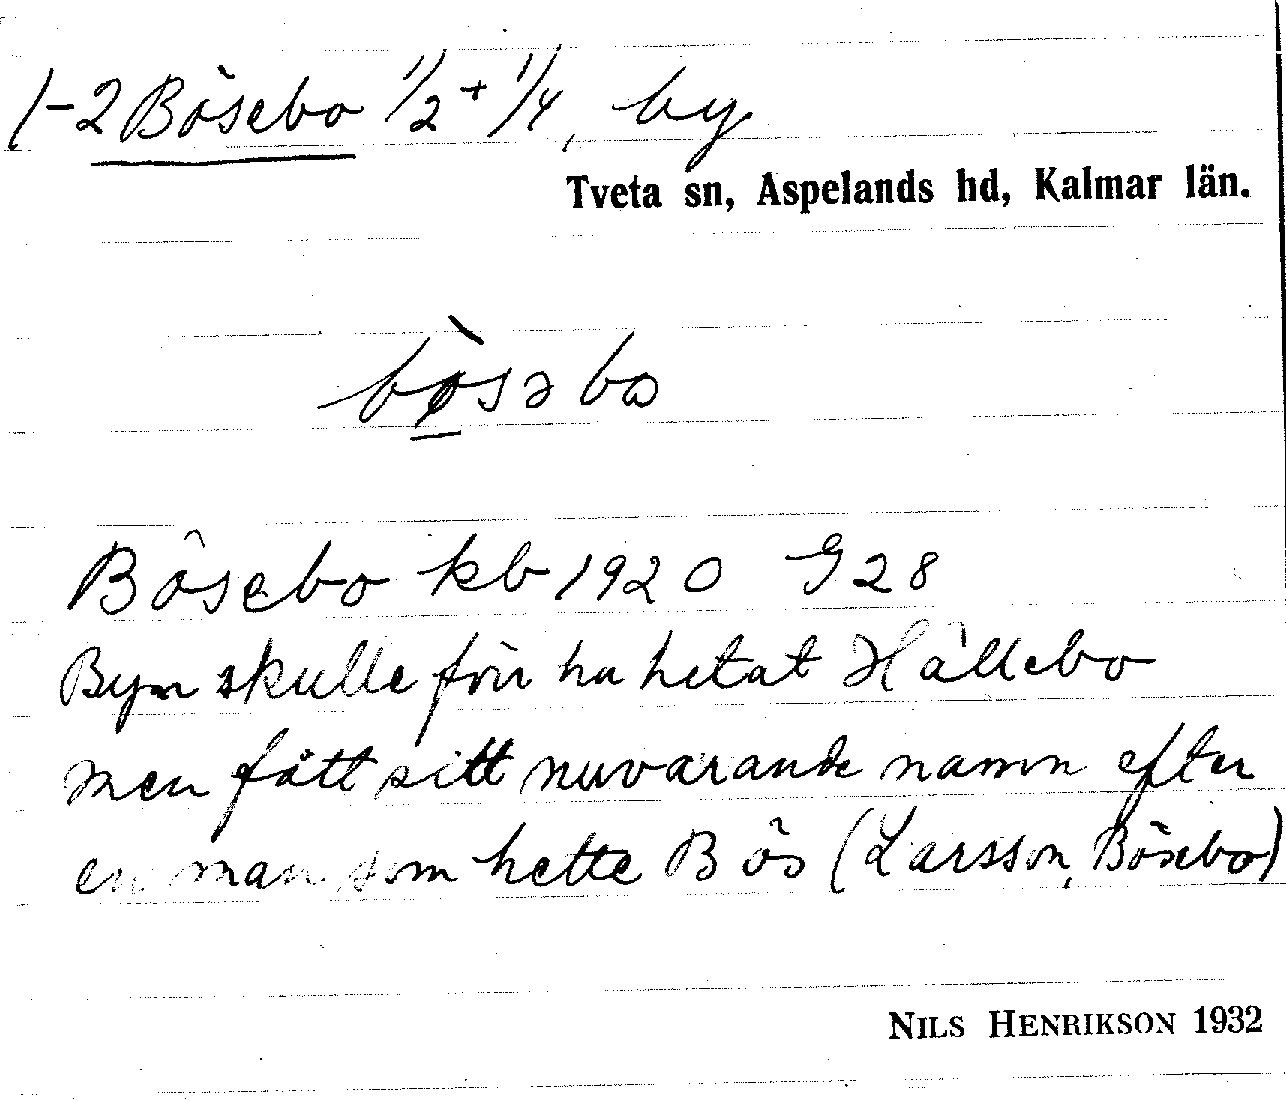 1-2 Bösebo 1/2 + 1/4, by
Tveta sn, Aspelands hd, Kalmar län.
bø̀səbo
Bösebo kb 1920 G 28
Byn skulle förr ha hetat Hällebo
men fått sitt nuvarande namn efter
en man som hette Bös (Larsson, Bösebo)
NILS HENRIKSON 1932